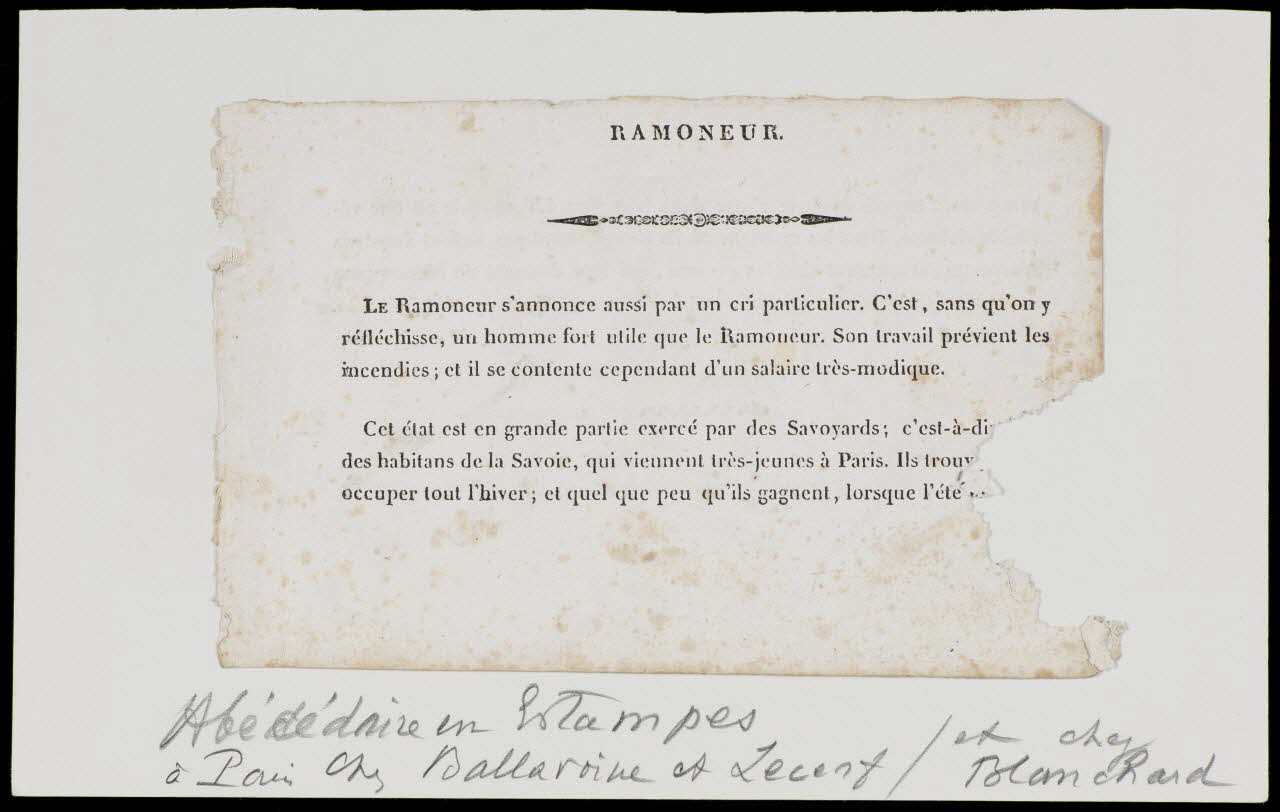 RAMONEUR.
LE Ramoneur s'annonce aussi par un cri particulier. C'est, sans qu'on y
réfléchisse, un homme fort utile que le Ramoneur. Son travail prévient les
incendies; et il se contente cependant d'un salaire très-modique.
Cet état est en grande partie exercé par des Savoyards; c'est-à-di
des habitans de la Savoie, qui viennent très-jeunes à Paris. Ils trouv
occuper tout l'hiver; et quel que peu qu'ils gagnent, lorsque l'été
Abécédaire en Estampes
à Paris chez Ballavoine et Lecerf / et chez
Blanchard